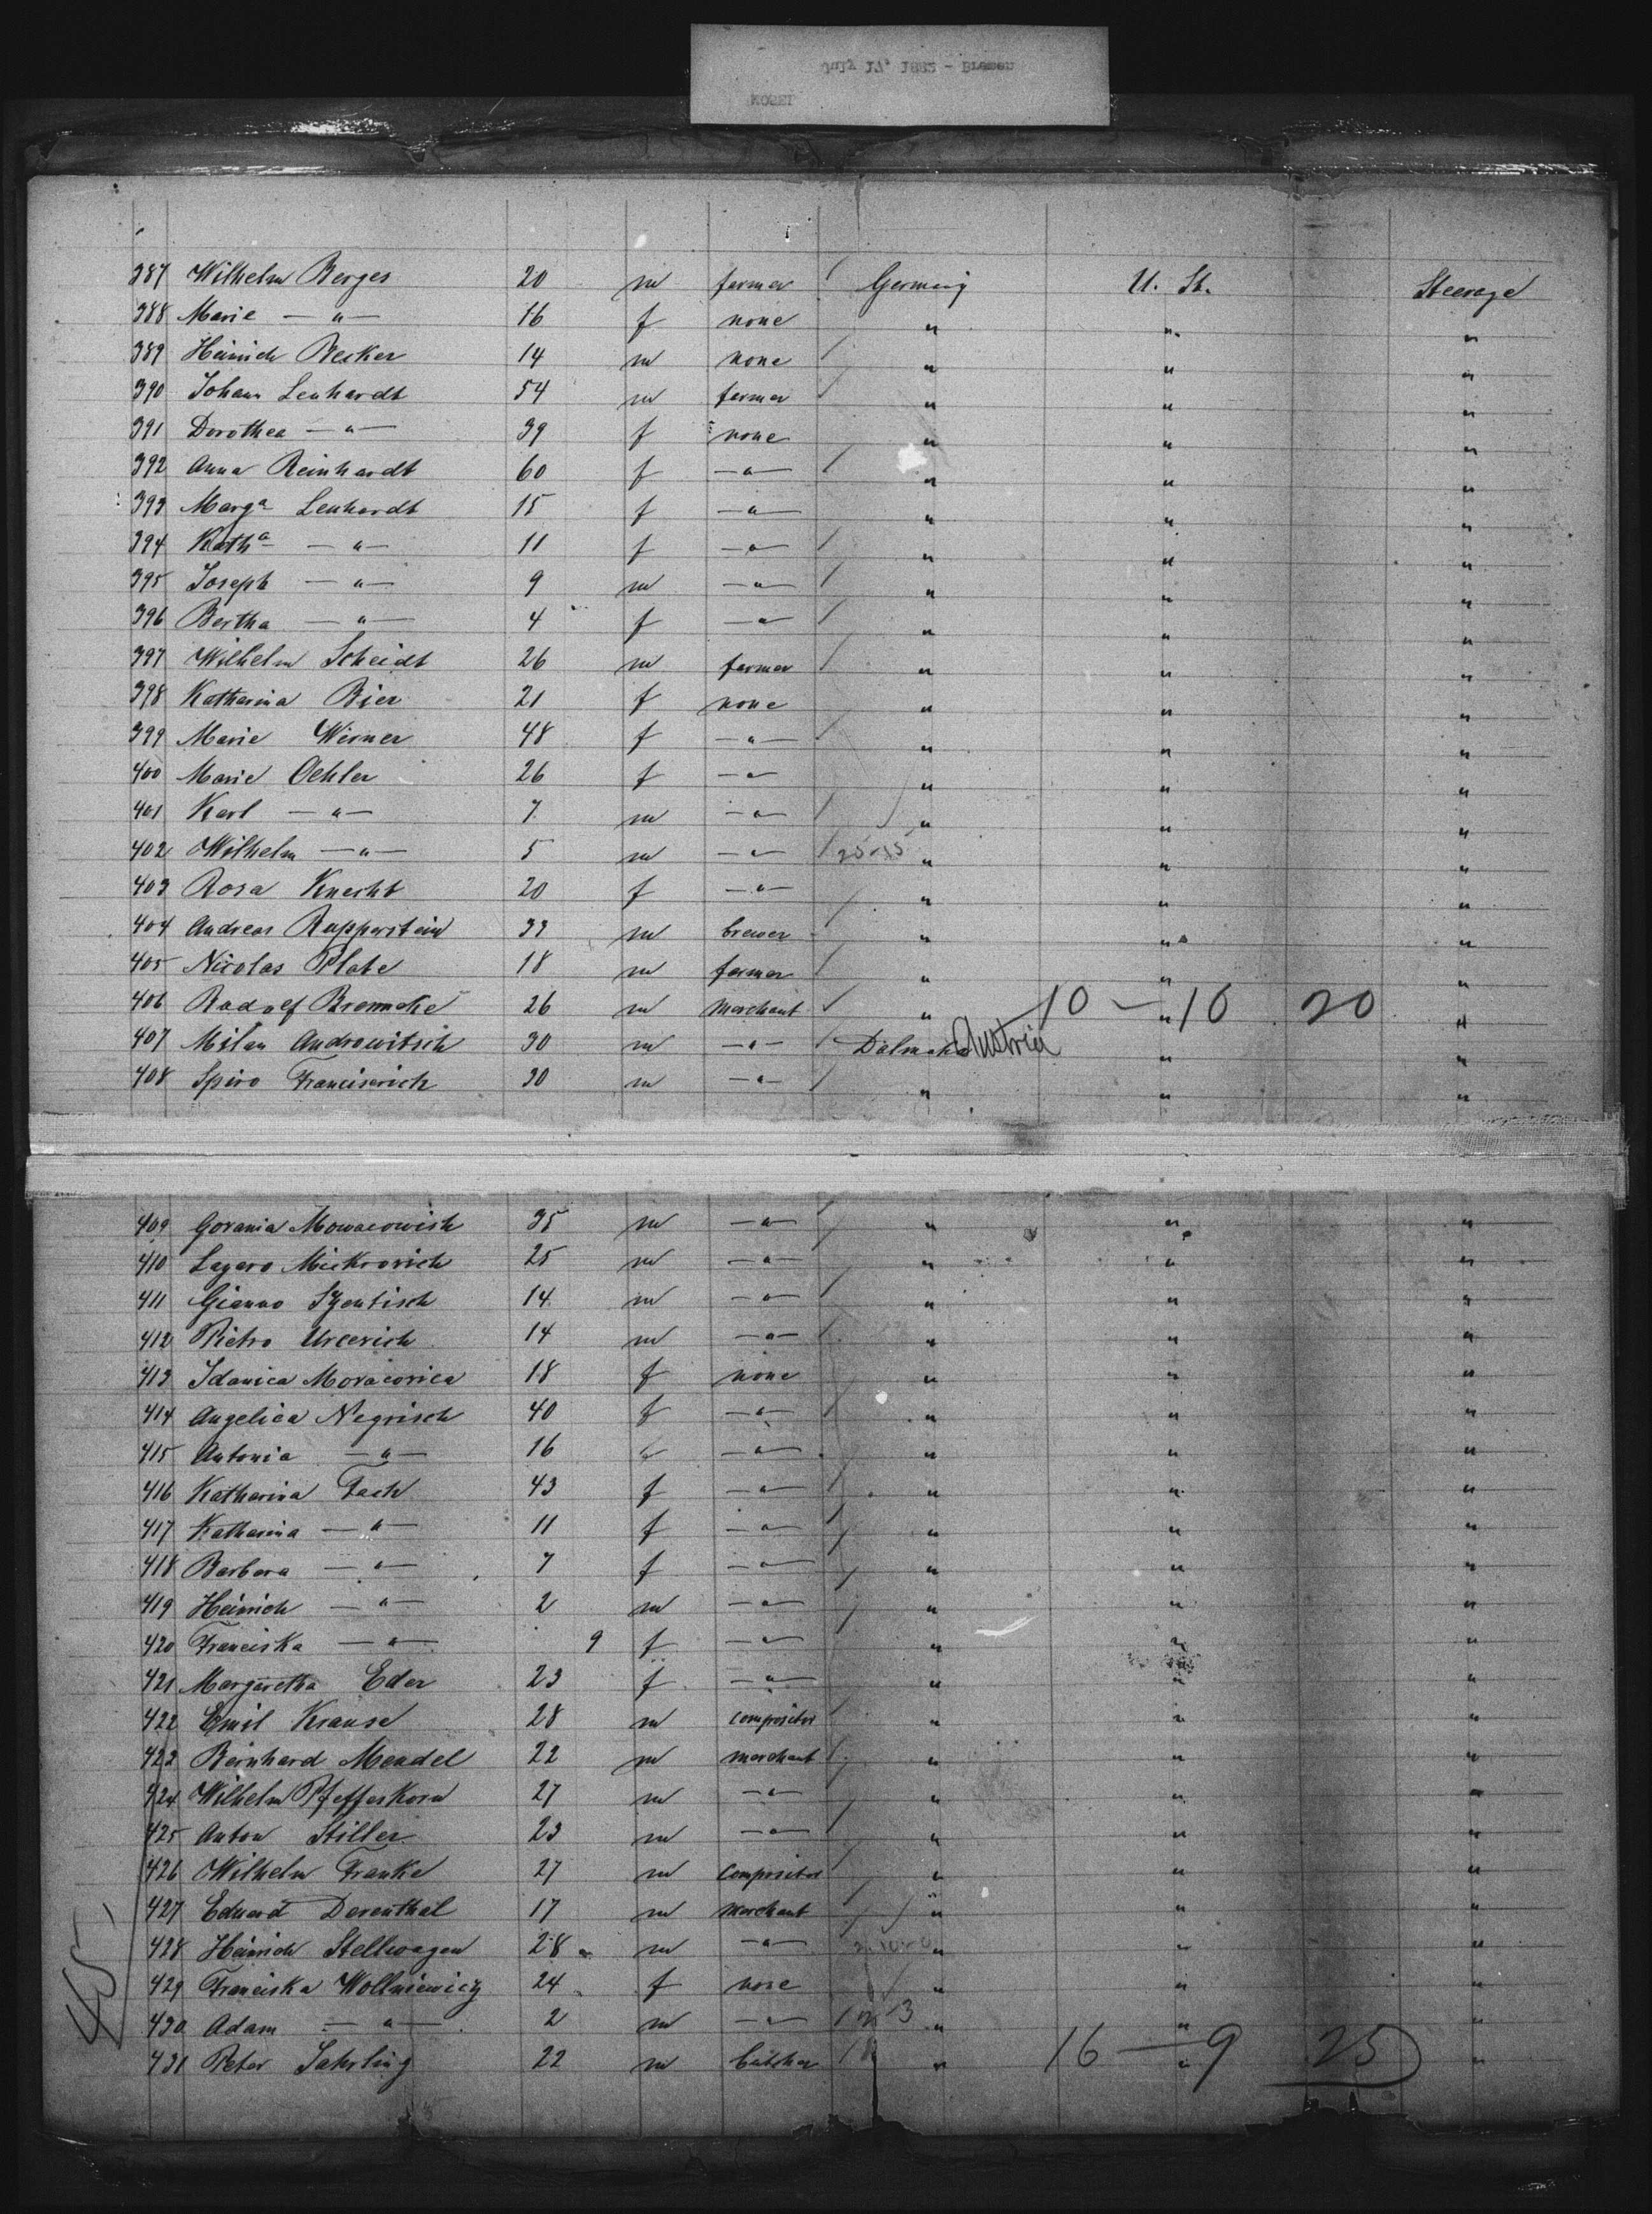 July 17, 1882 - Bremen
MOSEL
387 Wilhelm Berges 20 m farmer Germany U. St. Steerage
388 Marie — " — 16 f none " " "
389 Heinrich Becker 14 m none " " "
390 Johann Lenhardt 54 m farmer " " "
391 Dorothea — " — 39 f none " " "
392 Anna Reinhardt 60 f — " — " " "
393 Marga Lenhardt 15 f — " — " " "
394 Katha — " — 11 f — " — " " "
395 Joseph — " — 9 m — " — " " "
396 Bertha — " — 4 f — " — " " "
397 Wilhelm Scheidt 26 m farmer " " "
398 Katharina Bier 21 f none " " "
399 Marie Wirner 48 f — " — " " "
400 Marie Oehler 26 f — " — " " "
401 Karl — " — 7 m — " — " " "
402 Wilhelm — " — 5 m — " — 25-15 " " "
403 Rosa Knecht 20 f — " — " " "
404 Andreas Rapperstein 33 m brewer " " "
405 Nicolas Plate 18 m farmer " " "
406 Rudolf Bremcke 26 m merchant " 10 — " 10 20 "
407 Milan Androwitsch 30 m — " — Dalmatia Austria " "
408 Spiro Franciserich 30 m — " — " " "
409 Gorania Mowacowich 35 m — " — " " "
410 Lazaro Mickrovich 25 m — " — " " "
411 Gianno Szentisch 14 m — " — " " "
412 Pietro Urcevich 14 m — " — " " "
413 Idanica Moracovica 18 f none " " "
414 Angelica Negrisch 40 f — " — " " "
415 Antonia — " — 16 f — " — " " "
416 Katharina Fach 43 f — " — " " "
417 Katharina — " — 11 f — " — " " "
418 Barbara — " — 7 f — " — " " "
419 Heinrich — " — 2 m — " — " " "
420 Franciska — " — 9 f — " — " " "
421 Margaretha Eder 23 f — " — " " "
422 Emil Krause 28 m compositor " " "
423 Bernhard Mendel 22 m merchant " " "
424 Wilhelm Pfefferkorn 27 m — " — " " "
425 Anton Stiller 23 m — " — " " "
426 Wilhelm Franke 27 m compositor " " "
427 Eduard Derenthal 17 m merchant " " "
428 Heinrich Stellwagen 28 m — " — " " "
429 Franciska Wollniewicz 24 f none " " "
430 Adam — " — 2 m — " — " " "
431 Peter Jahrling 22 m butcher " 16 — " 9 25 "
45